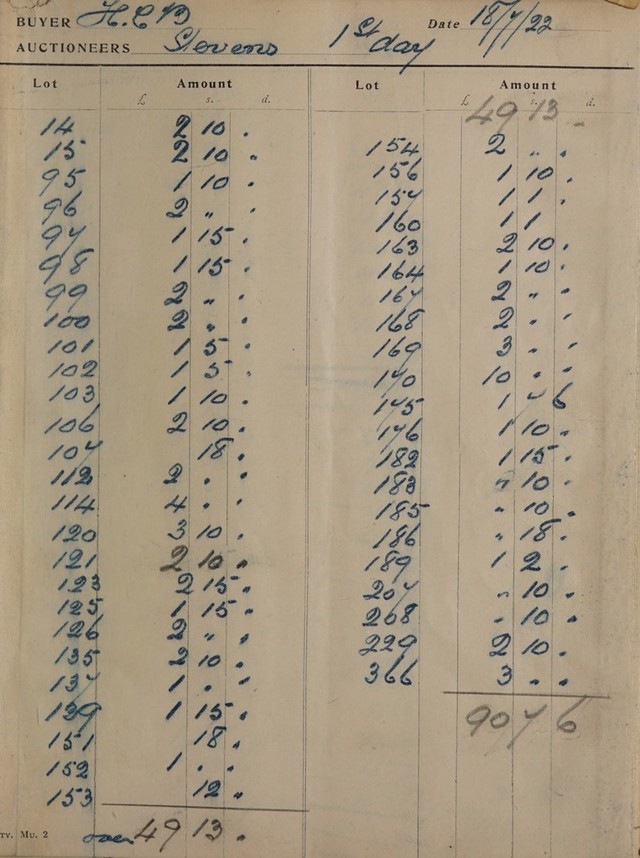 BUYER H.C.B Date 18/7/22
AUCTIONEERS Stevens 1st day
Lot Amount
£ s. d.
14 2 10 .
15 2 10 .
95 1 10 .
96 2 " .
97 1 15 .
98 1 15 .
99 2 " .
100 2 " .
101 1 5 .
102 1 5 .
103 1 10 .
106 2 10 .
107 18 .
112 2 . .
114 4 . .
120 3 10 .
121 2 10 "
123 2 15 "
125 1 15 "
126 2 " "
135 2 10 .
137 1 . .
139 1 15 .
151 18 .
152 1 . .
153 12 "
over 49 13 .
TY. MU. 2
Lot Amount
£ s. d.
49 13 .
154 2 " .
156 1 10 .
157 1 1 .
160 1 1
163 2 10 .
164 1 10 .
167 2 " .
168 2 . .
169 3 . .
170 10 . .
175 1 7 6
176 1 10 .
182 1 15 .
183 " 10 .
185 " 10 .
186 " 18 .
189 1 2 .
207 " 10 .
208 " 10 .
229 2 10 .
366 3 . .
90 7 6